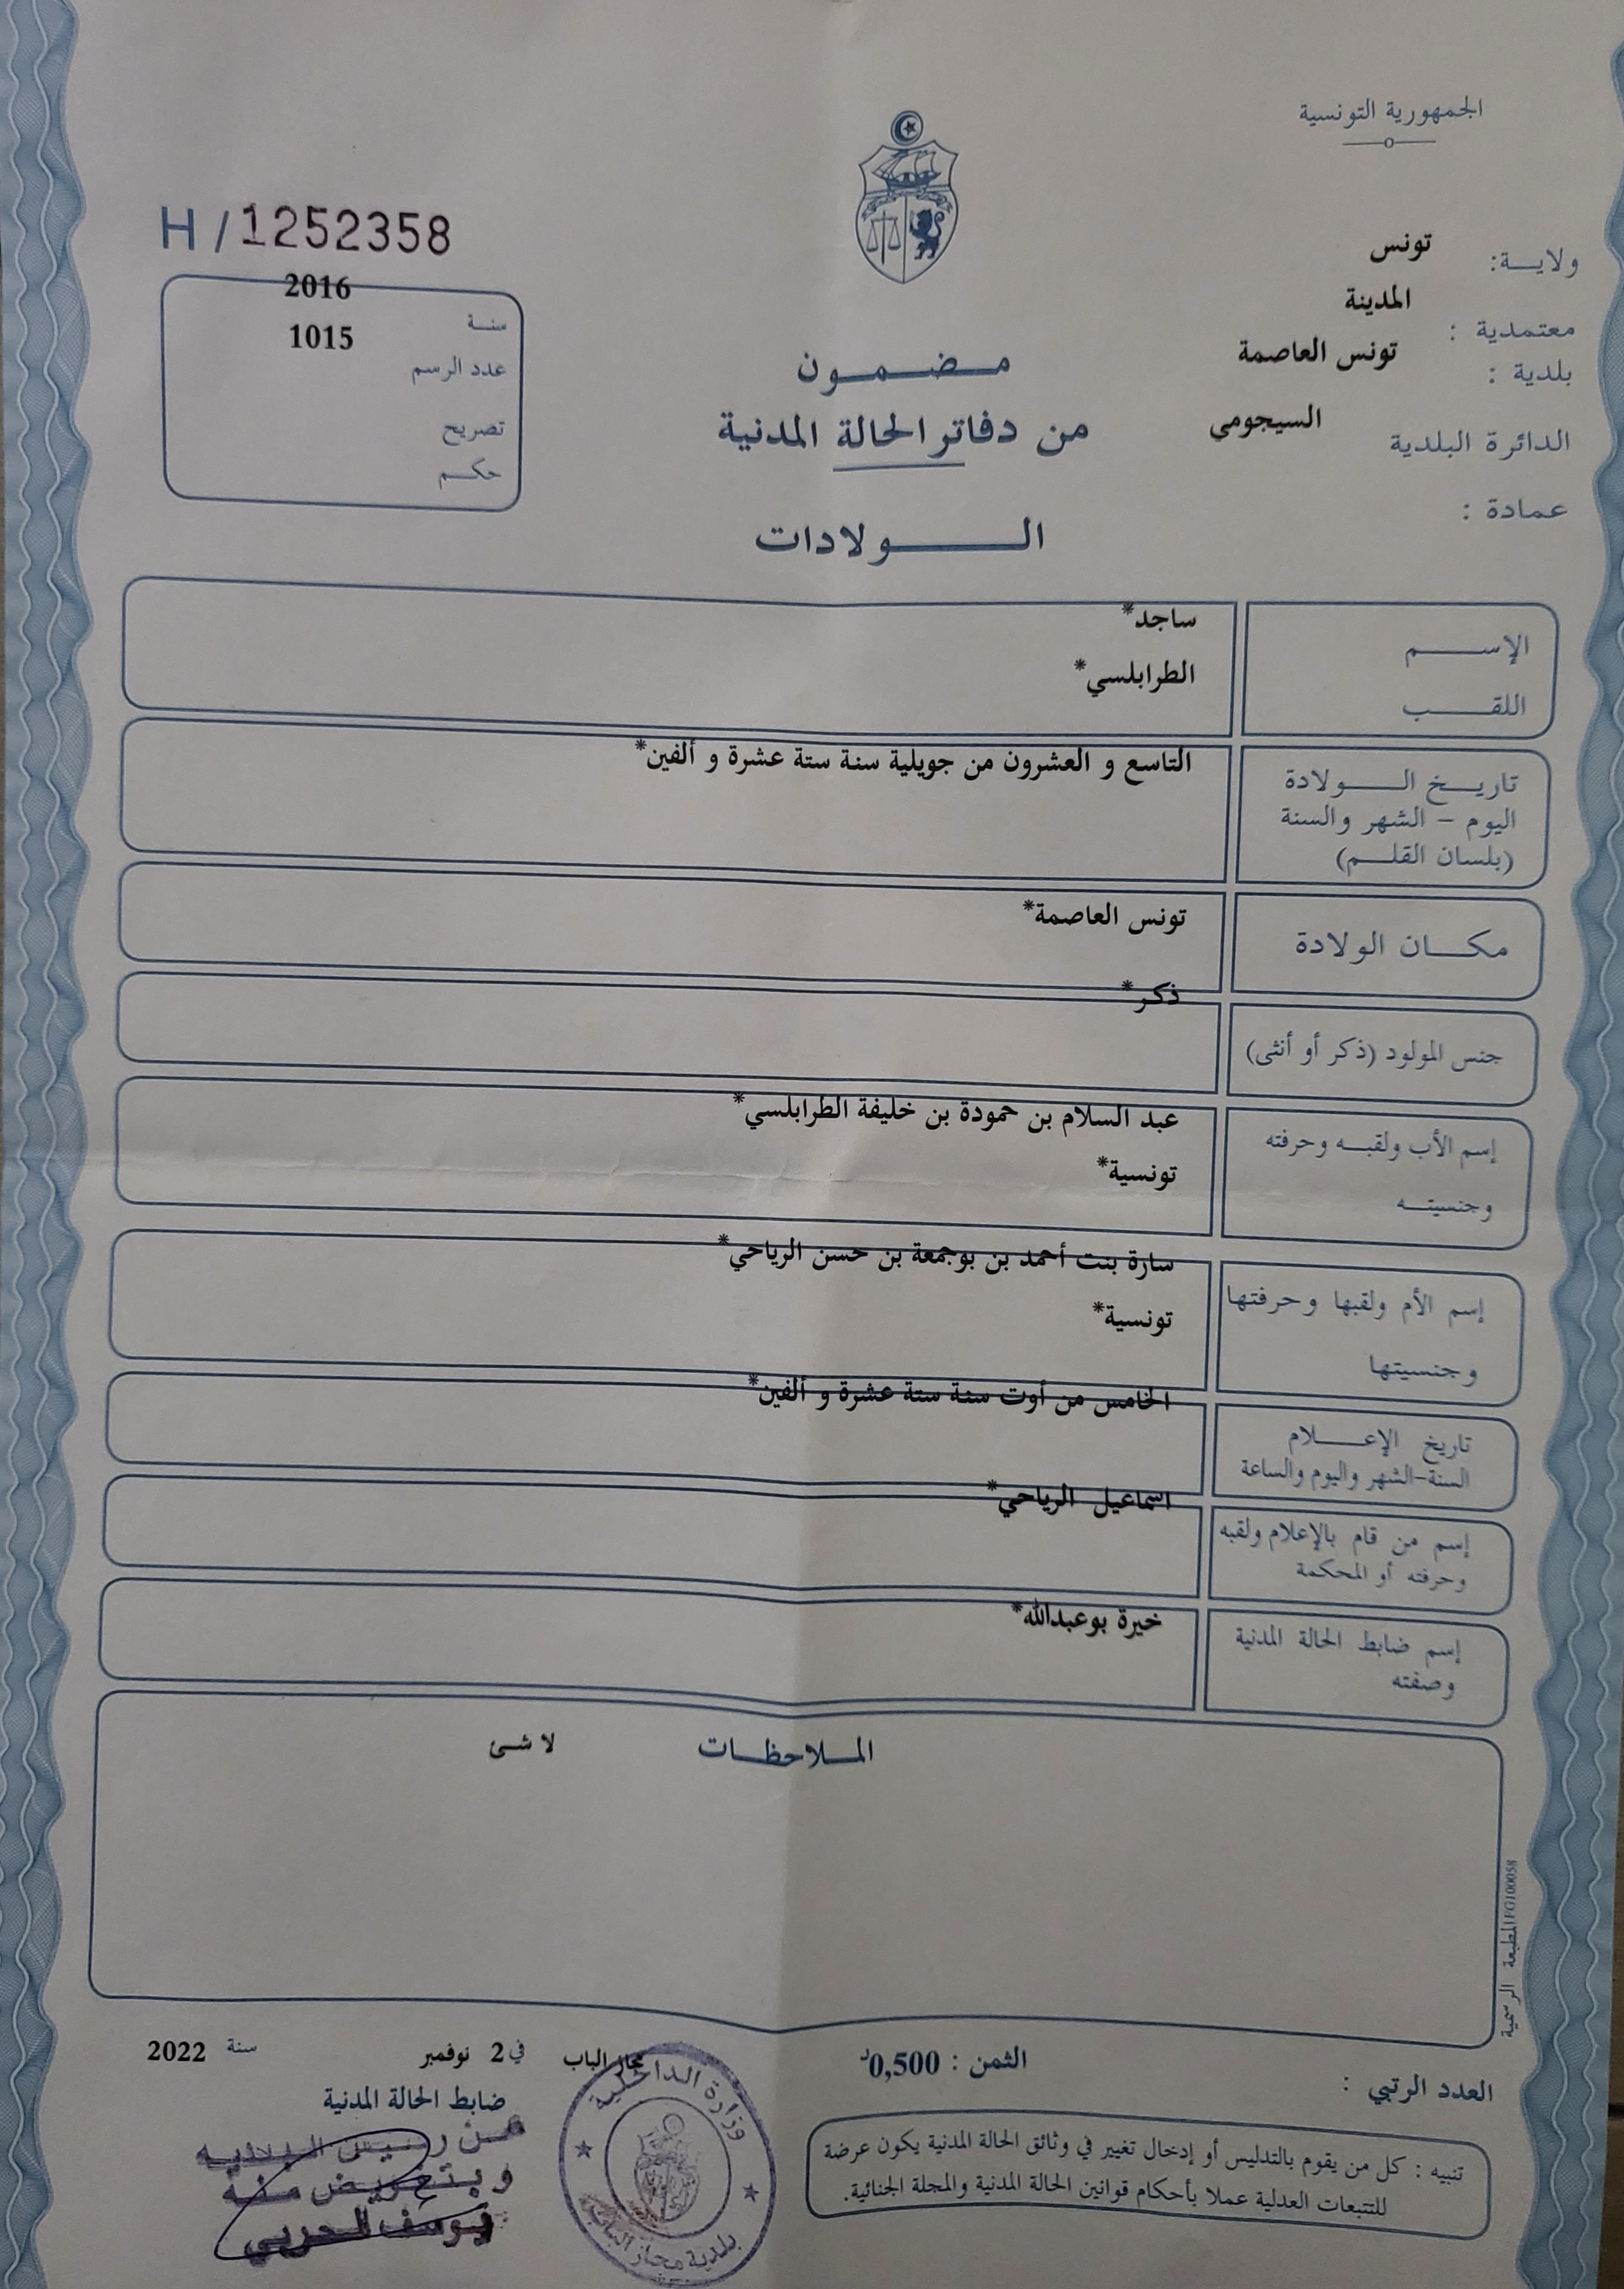 الجمهورية التونسية
ولايـــة: تونس
معتمدية : المدينة
بلدية : تونس العاصمة
الدائرة البلدية السيجومي
عمادة :
H / 1252358
سنة 2016
عدد الرسم 1015
تصريح
حكم
مضمون
من دفاتر الحالة المدنية
الولادات
الإسم ساجد*
اللقب الطرابلسي*
تاريخ الولادة
اليوم – الشهر والسنة
(بلسان القلم)
التاسع و العشرون من جويلية سنة ستة عشرة و ألفين*
مكان الولادة تونس العاصمة*
جنس المولود (ذكر أو أنثى) ذكر*
إسم الأب ولقبه وحرفته عبد السلام بن حمودة بن خليفة الطرابلسي*
وجنسيته تونسية*
إسم الأم ولقبها وحرفتها سارة بنت أحمد بن بوجمعة بن حسن الرياحي*
وجنسيتها تونسية*
تاريخ الإعلام الخامس من أوت سنة ستة عشرة و ألفين*
السنة-الشهر واليوم والساعة
إسم من قام بالإعلام ولقبه اسماعيل الرياحي*
وحرفته أو المحكمة
إسم ضابط الحالة المدنية خيرة بوعبدالله*
وصفته
الملاحظات لا شئ
المطبعة الرسمية FG100058
العدد الرتبي :
الثمن : 0,500د
مجاز الباب في 2 نوفمبر سنة 2022
ضابط الحالة المدنية
عن رئيس البلدية
وبتفويض منه
يوسف الحربي
وزارة الداخلية
بلدية مجاز الباب
تنبيه : كل من يقوم بالتدليس أو إدخال تغيير في وثائق الحالة المدنية يكون عرضة
للتتبعات العدلية عملا بأحكام قوانين الحالة المدنية والمجلة الجنائية.